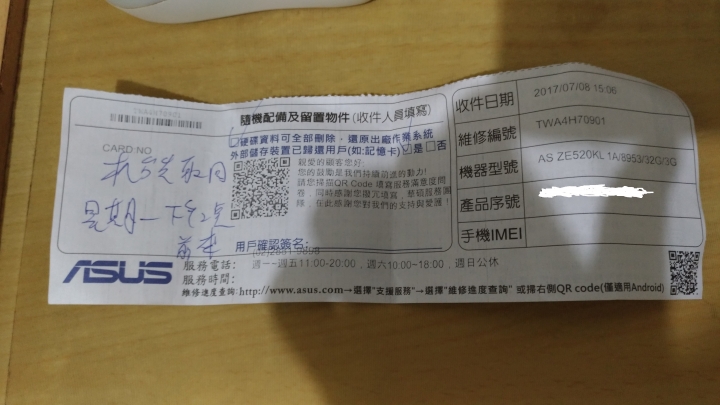 TWA4H70901
CARD NO
隨機配備及留置物件(收件人員填寫)
硬碟資料可全部刪除，還原出廠作業系統
外部儲存裝置已歸還用戶(如:記憶卡)☑是☐否
親愛的顧客您好:
您的鼓勵是我們持續前進的動力!
請您掃描QR Code 填寫服務滿意度問
答，同時感謝您撥冗填寫，華碩服務團
隊，在此感謝您對我們的支持與愛護!
星期一下午
用戶確認簽名:
ASUS
服務電話:
服務時間:
週一~週五11:00-20:00，週六10:00~18:00，週日公休
維修進度查詢:http://www.asus.com→選擇"支援服務"→選擇"維修進度查詢" 或掃右側QR code(僅適用Android)
收件日期 2017/07/08 15:06
維修編號 TWA4H70901
機器型號 AS ZE520KL 1A/8953/32G/3G
產品序號
手機IMEI